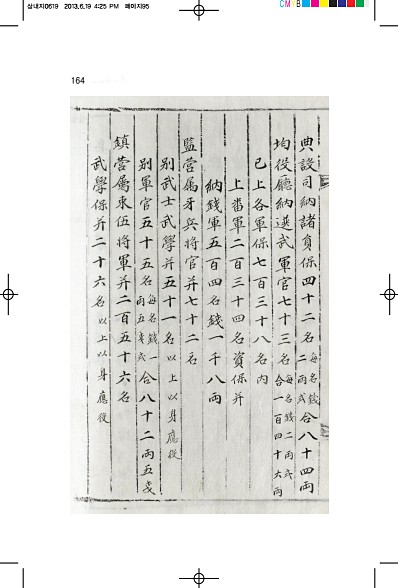 삼내지0619 2013.6.19 4:25 PM 페이지95
CMYB
164
典設司納諸員保四十二名每名錢二兩式合八十四兩
均役廳納選武軍官七十三名每名錢二兩式合一百四十六兩
已上各軍保七百三十八名內
上番軍二百三十四名資保幷
納錢軍五百四名錢一千八兩
監營屬牙兵將官幷七十二名
別武士武學幷五十一名以上以身應役
別軍官五十五名每名錢一兩五戔式合八十二兩五戔
鎭營屬束伍將軍幷二百五十六名
武學保幷二十六名以上以身應役